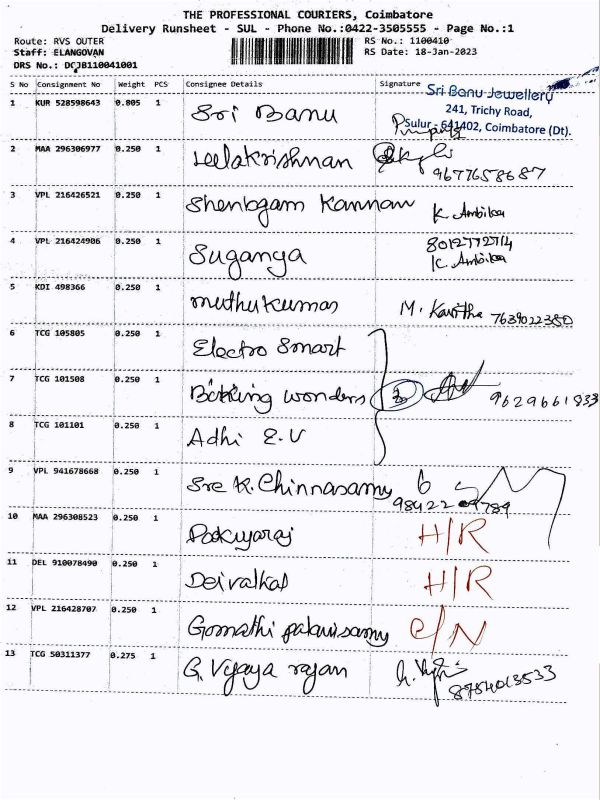 THE PROFESSIONAL COURIERS, Coimbatore
Delivery Runsheet - SUL - Phone No.:0422-3505555 - Page No.:1
Route: RVS OUTER RS No.: 1100410
Staff: ELANGOVAN RS Date: 18-Jan-2023
DRS No.: DCJB110041001
S No Consignment No Weight PCS Consignee Details Signature
Sri Banu Jewellery
241, Trichy Road,
Sulur - 641402, Coimbatore (Dt).
1 KUR 528598643 0.805 1 Sri Banu
2 MAA 296306977 0.250 1 Leelakrishnan
9677658687
3 VPL 216426521 0.250 1 Shenbgam Kannan K. Ambika
4 VPL 216424906 0.250 1 Suganya 8012772714
K. Ambika
5 KDI 498366 0.250 1 muthukumar M. Kavitha 7639022380
6 TCG 105805 0.250 1 Electro Smart
7 TCG 101508 0.250 1 wonders 3 9629661833
8 TCG 101101 0.250 1 Adhi E.V
9 VPL 941678668 0.250 1 Sre K. Chinnasamy
10 MAA 296308523 0.250 1 H/R
11 DEL 910078490 0.250 1 H/R
12 VPL 216428707 0.250 1 Gomathi palanisamy C/N
13 TCG 50311377 0.275 1 G. Vijaya rajan